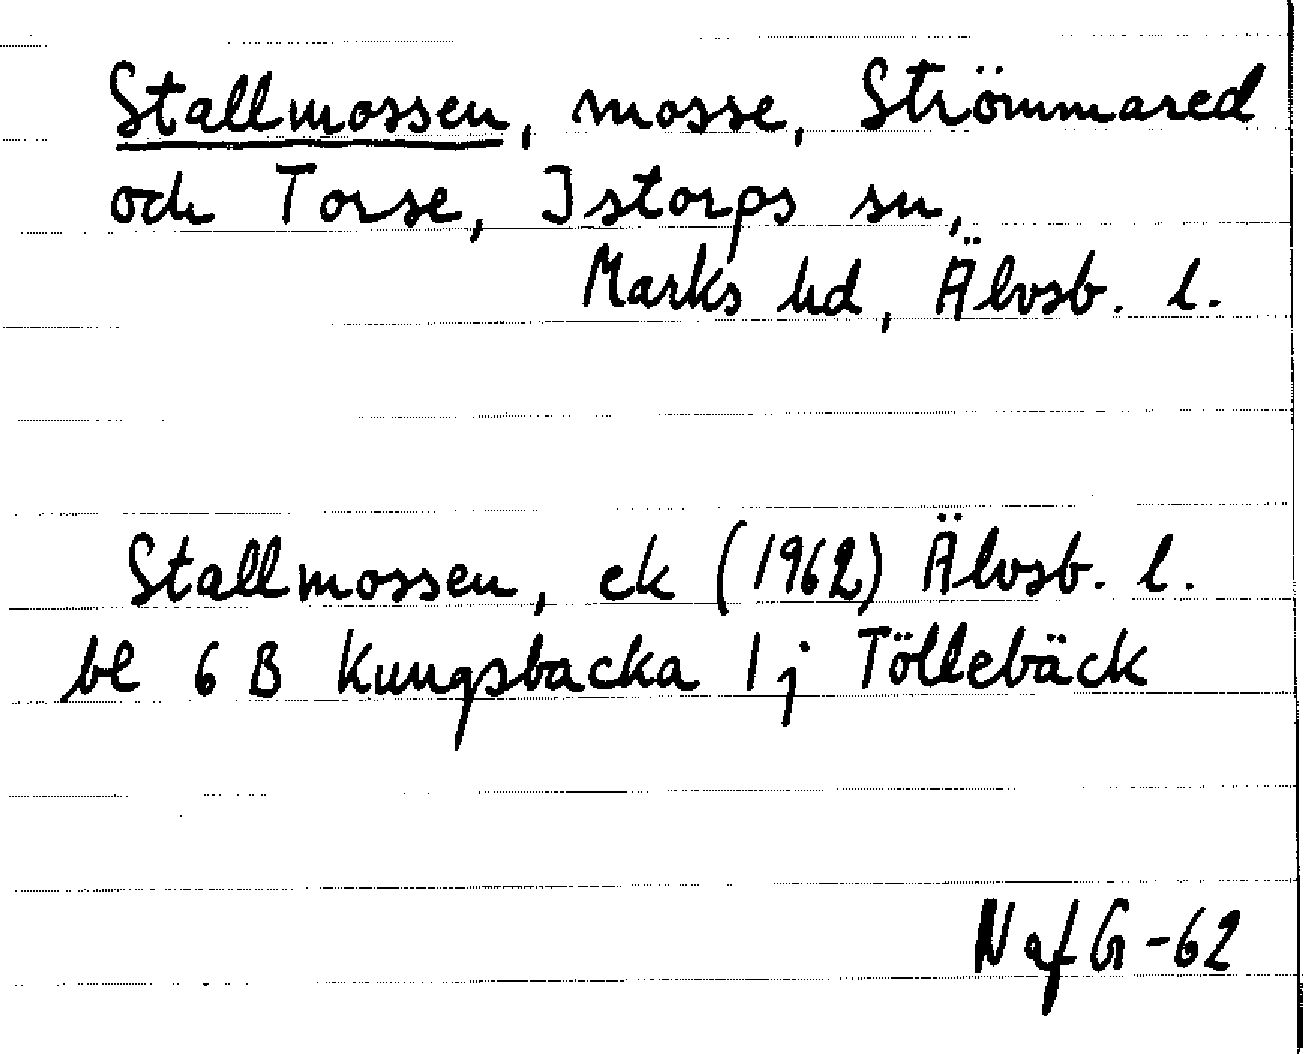 Stallmossen, mosse, Strömmared
och Torse, Istorps sn,
Marks hd, Älvsb. l.
Stallmossen, ek (1962) Älvsb. l.
bl 6 B Kungsbacka 1 j Töllebäck
N af G -62